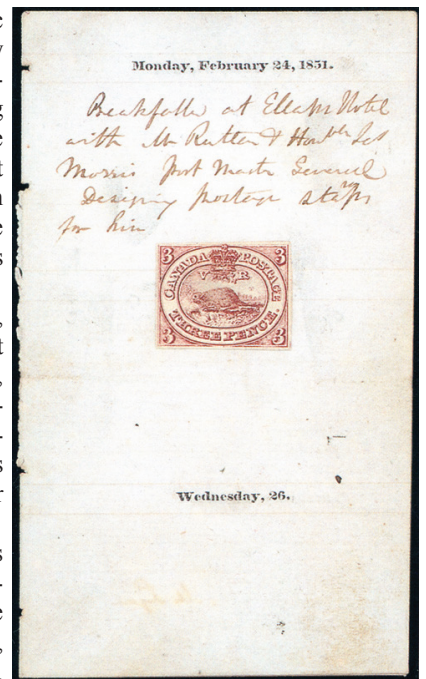 Monday, February 24, 1851.
Breakfasted at Ellahs Hotel
with Mr Ruttan & Honble Jas
Morris Post Master General
Designing postage stamps
for him
3 3
CANADA POSTAGE
V R
THREE PENCE.
3 3
Wednesday, 26.